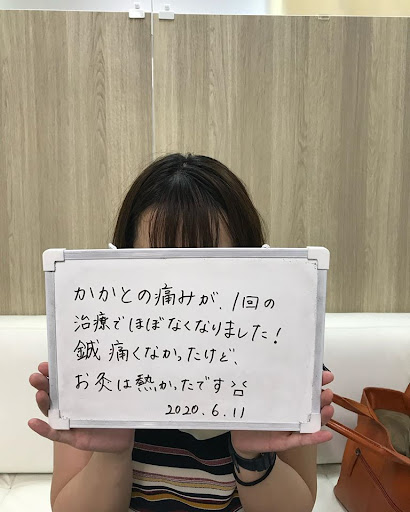 かかとの痛みが、1回の
治療でほぼなくなりました!
鍼痛くなかったけど、
お灸は熱かったです
2020.6.11